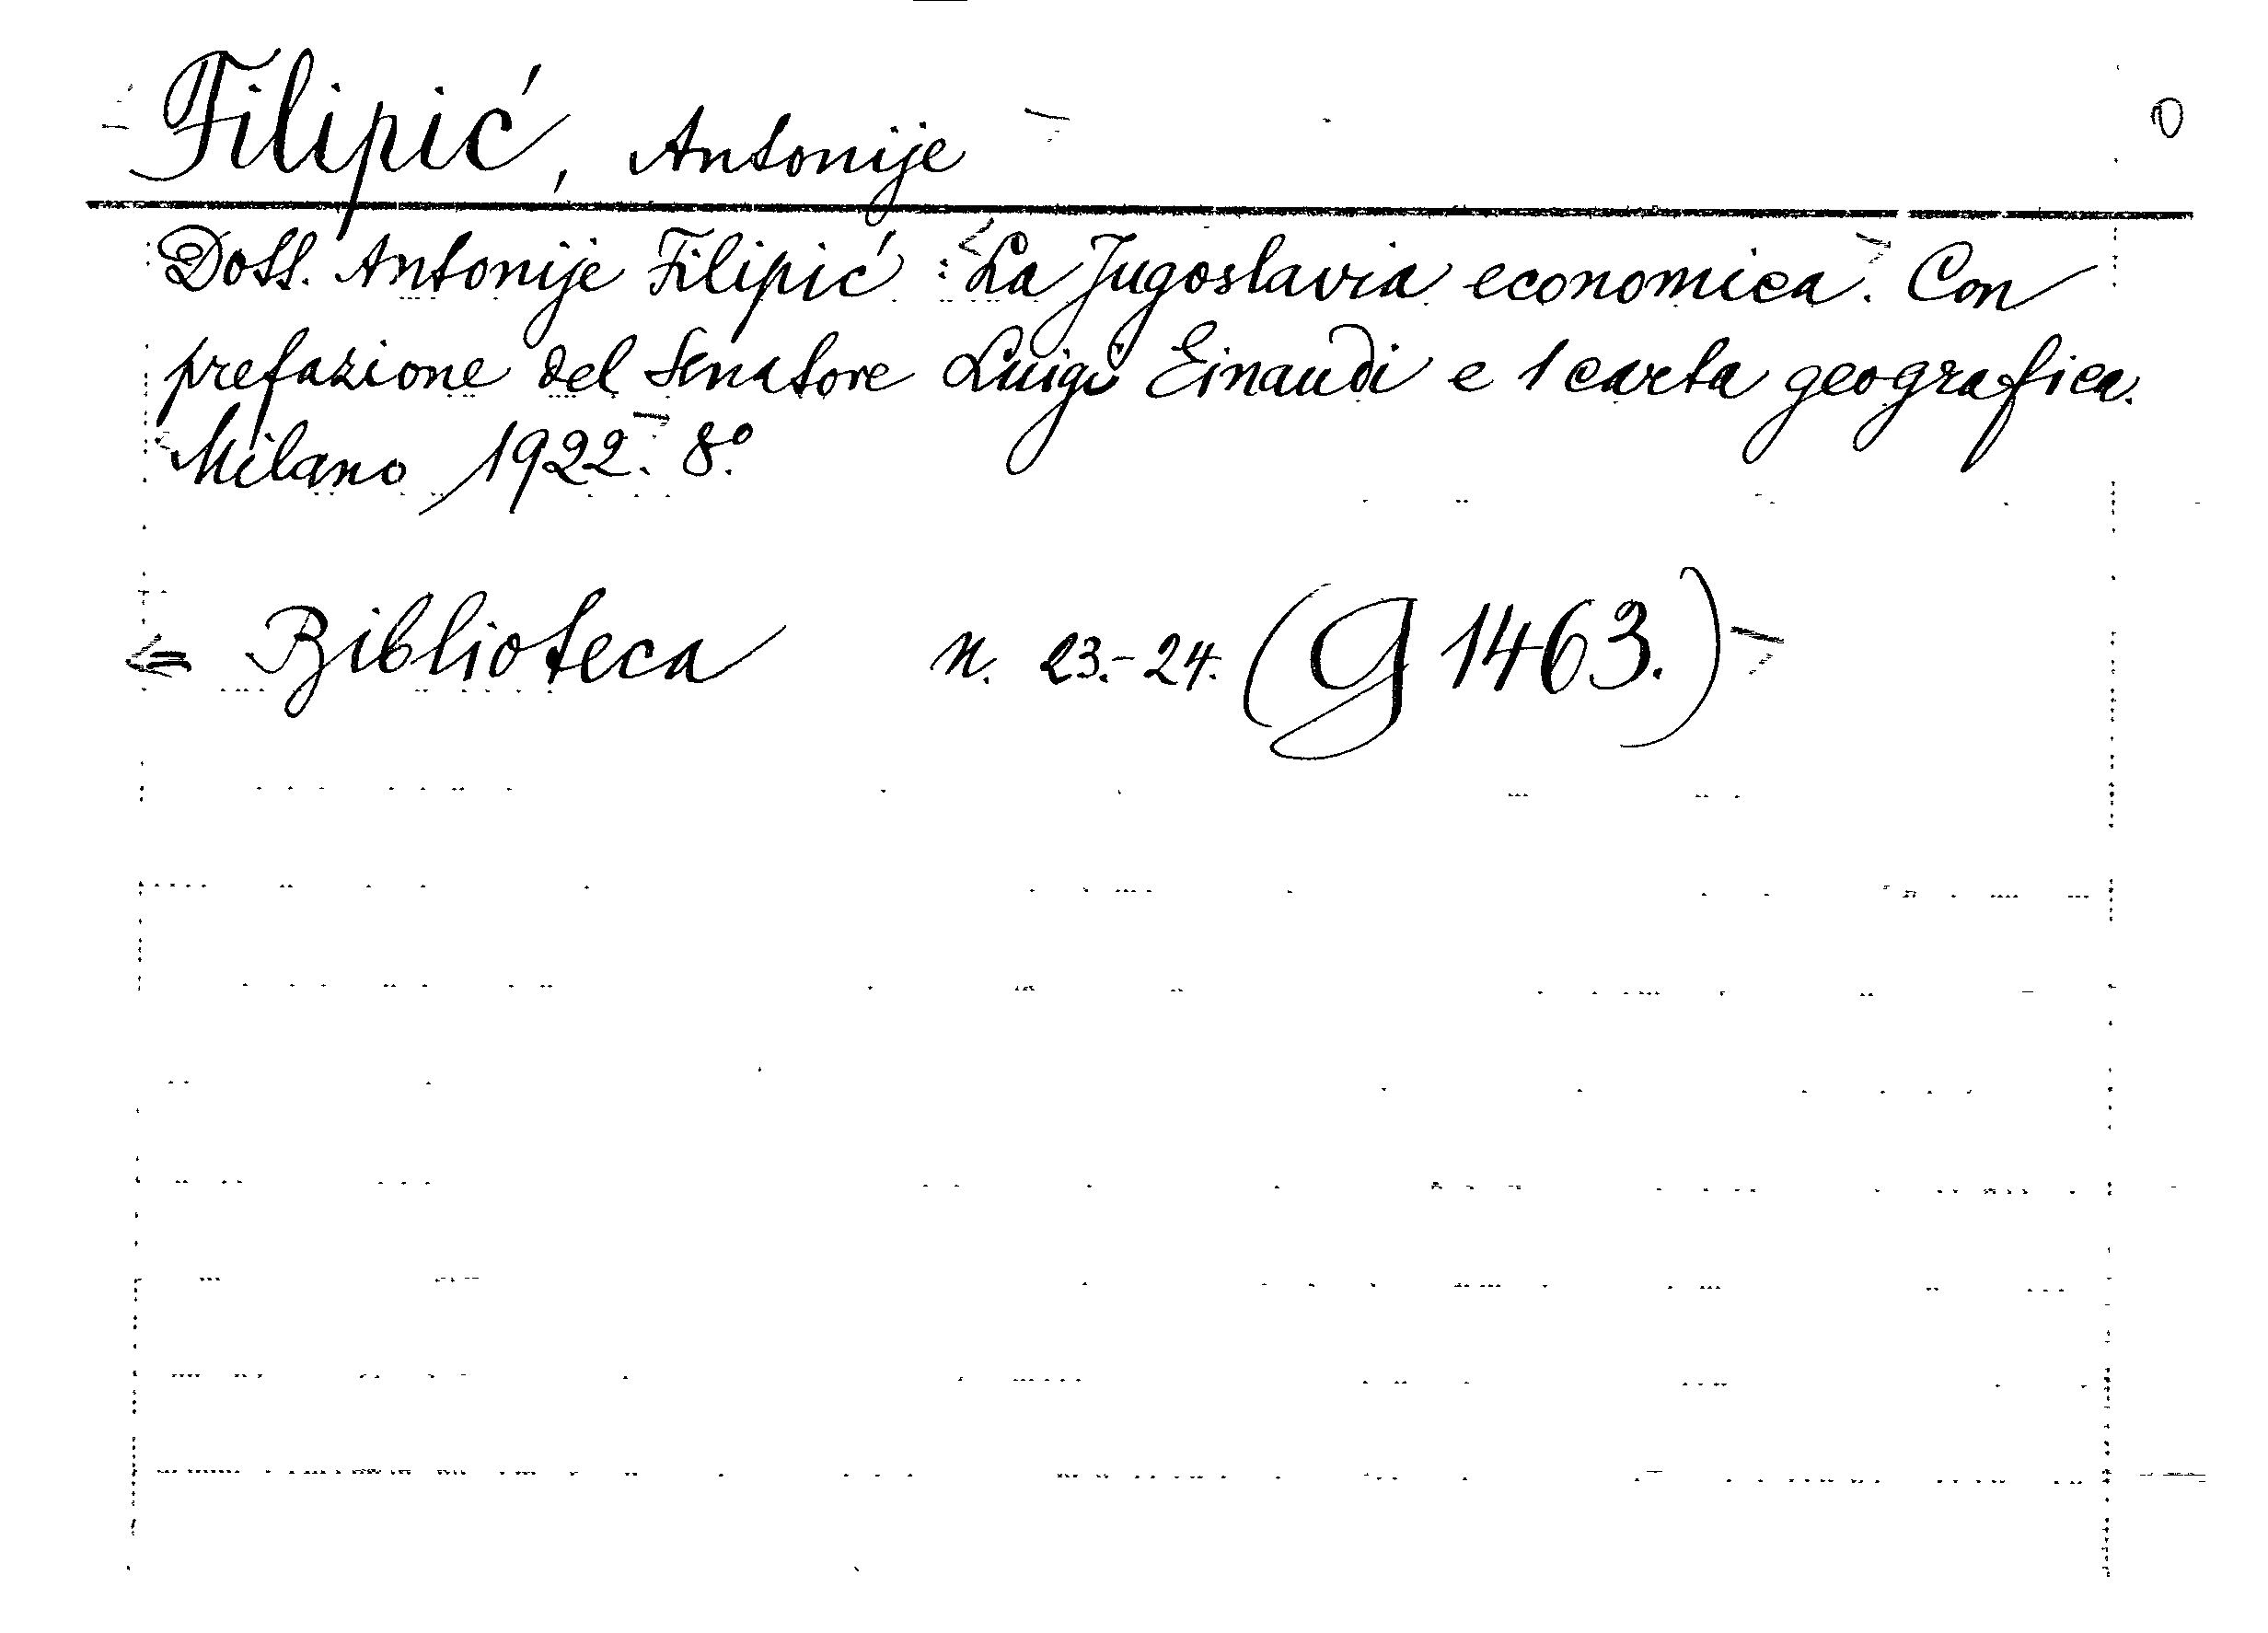 Filipić, Antonije
Dott. Antonije Filipić : La Jugoslavia economica. Con
prefazione del Senatore Luigi Einaudi e 1 carta geografica.
Milano, 1922. 8°.
Biblioteca n. 23.-24. (G 1463.)